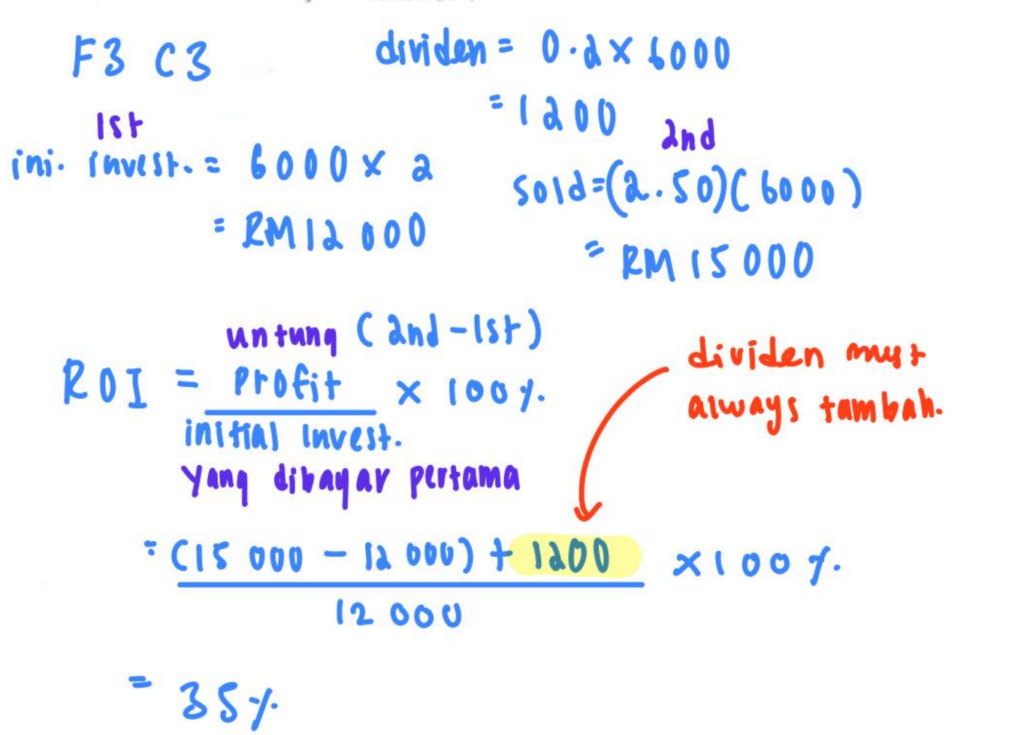 F3 C3
dividen = 0.2 × 6000
= 1200
1st
ini. invest. = 6000 × 2
= RM12 000
2nd
sold=(2.50)(6000)
= RM 15 000
untung (2nd-1st)
ROI = Profit × 100%.
initial invest.
yang dibayar pertama
dividen must
always tambah.
= (15 000 - 12 000) + 1200 × 100 %.
12 000
= 35%